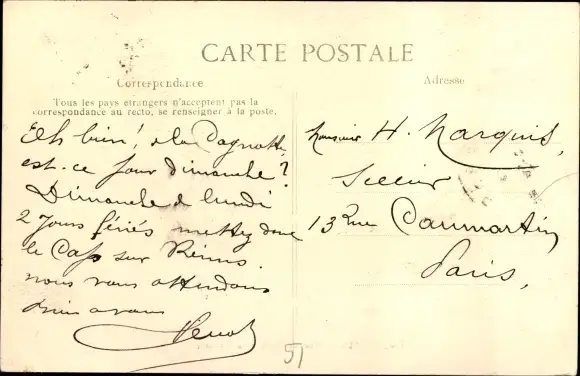 CARTE POSTALE
Correspondance
Tous les pays étrangers n'acceptent pas la
correspondance au recto, se renseigner à la poste.
Eh bien! & la Cagnotte
est-ce pour dimanche?
Dimanche & lundi
2 jours fériés mettez donc
le Cap sur Reims.
nous vous attendons
Adresse
Monsieur H. Marquis,
Sellier
13 Rue Caumartin
Paris,
51